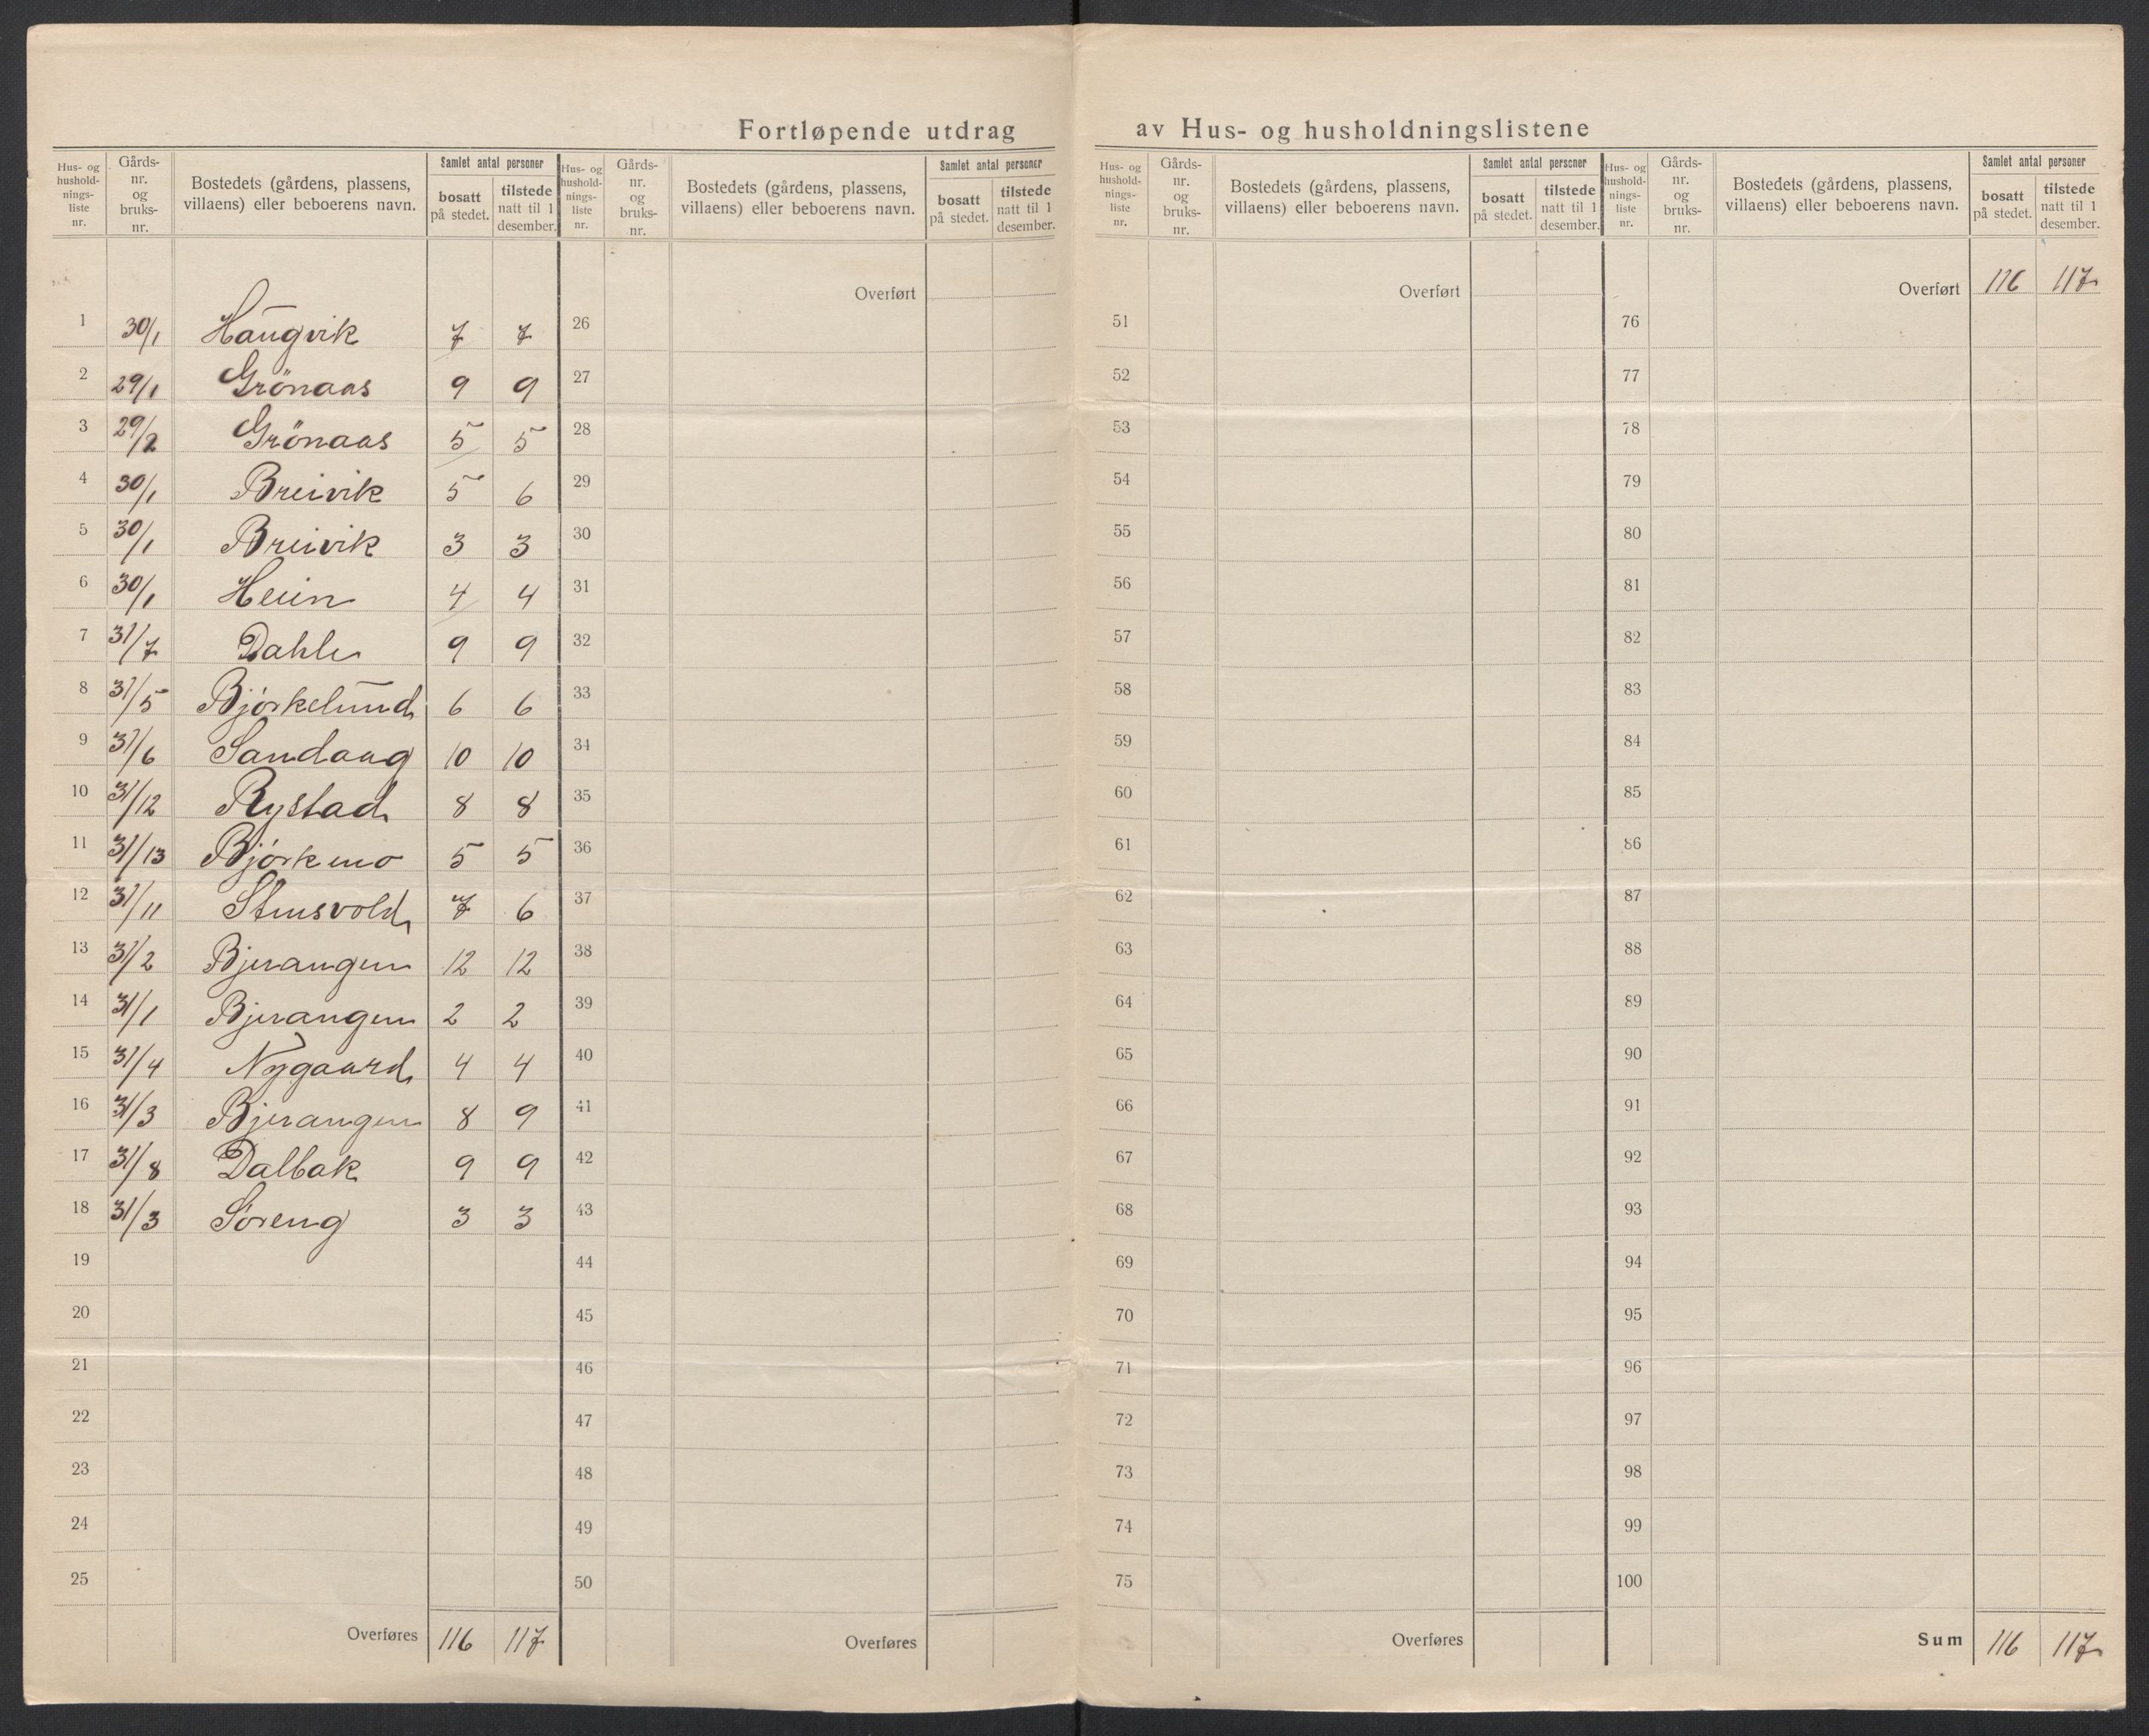 Fortløpende utdrag av Hus- og husholdningslistene
Hus- og husholdnings-liste nr. | Gårds-nr. og bruks-nr. | Bostedets (gårdens, plassens, villaens) eller beboerens navn. | Samlet antal personer bosatt på stedet. | tilstede natt til 1 desember.
1 30/1 Haugvik 7 7
2 29/1 Grönaas 9 9
3 29/2 Grönaas 5 5
4 30/1 Breivik 5 6
5 30/1 Breivik 3 3
6 30/1 Heien 4 4
7 31/7 Dahle 9 9
8 31/5 Bjórkelund 6 6
9 31/6 Sandaag 10 10
10 31/12 Rystad 8 8
11 31/13 Bjórkmo 5 5
12 31/11 Stensvold 7 6
13 31/2 Bjerangen 12 12
14 31/1 Bjerangen 2 2
15 31/4 Nygaard 4 4
16 31/3 Bjerangen 8 9
17 31/8 Dalbak 9 9
18 31/3 Sóreng 3 3
19
20
21
22
23
24
25
Overføres 116 117
Hus- og husholdnings-liste nr. | Gårds-nr. og bruks-nr. | Bostedets (gårdens, plassens, villaens) eller beboerens navn. | Samlet antal personer bosatt på stedet. | tilstede natt til 1 desember.
Overført
26
27
28
29
30
31
32
33
34
35
36
37
38
39
40
41
42
43
44
45
46
47
48
49
50
Overføres
Hus- og husholdnings-liste nr. | Gårds-nr. og bruks-nr. | Bostedets (gårdens, plassens, villaens) eller beboerens navn. | Samlet antal personer bosatt på stedet. | tilstede natt til 1 desember.
Overført
51
52
53
54
55
56
57
58
59
60
61
62
63
64
65
66
67
68
69
70
71
72
73
74
75
Overføres
Hus- og husholdnings-liste nr. | Gårds-nr. og bruks-nr. | Bostedets (gårdens, plassens, villaens) eller beboerens navn. | Samlet antal personer bosatt på stedet. | tilstede natt til 1 desember.
Overført 116 117
76
77
78
79
80
81
82
83
84
85
86
87
88
89
90
91
92
93
94
95
96
97
98
99
100
Sum 116 117